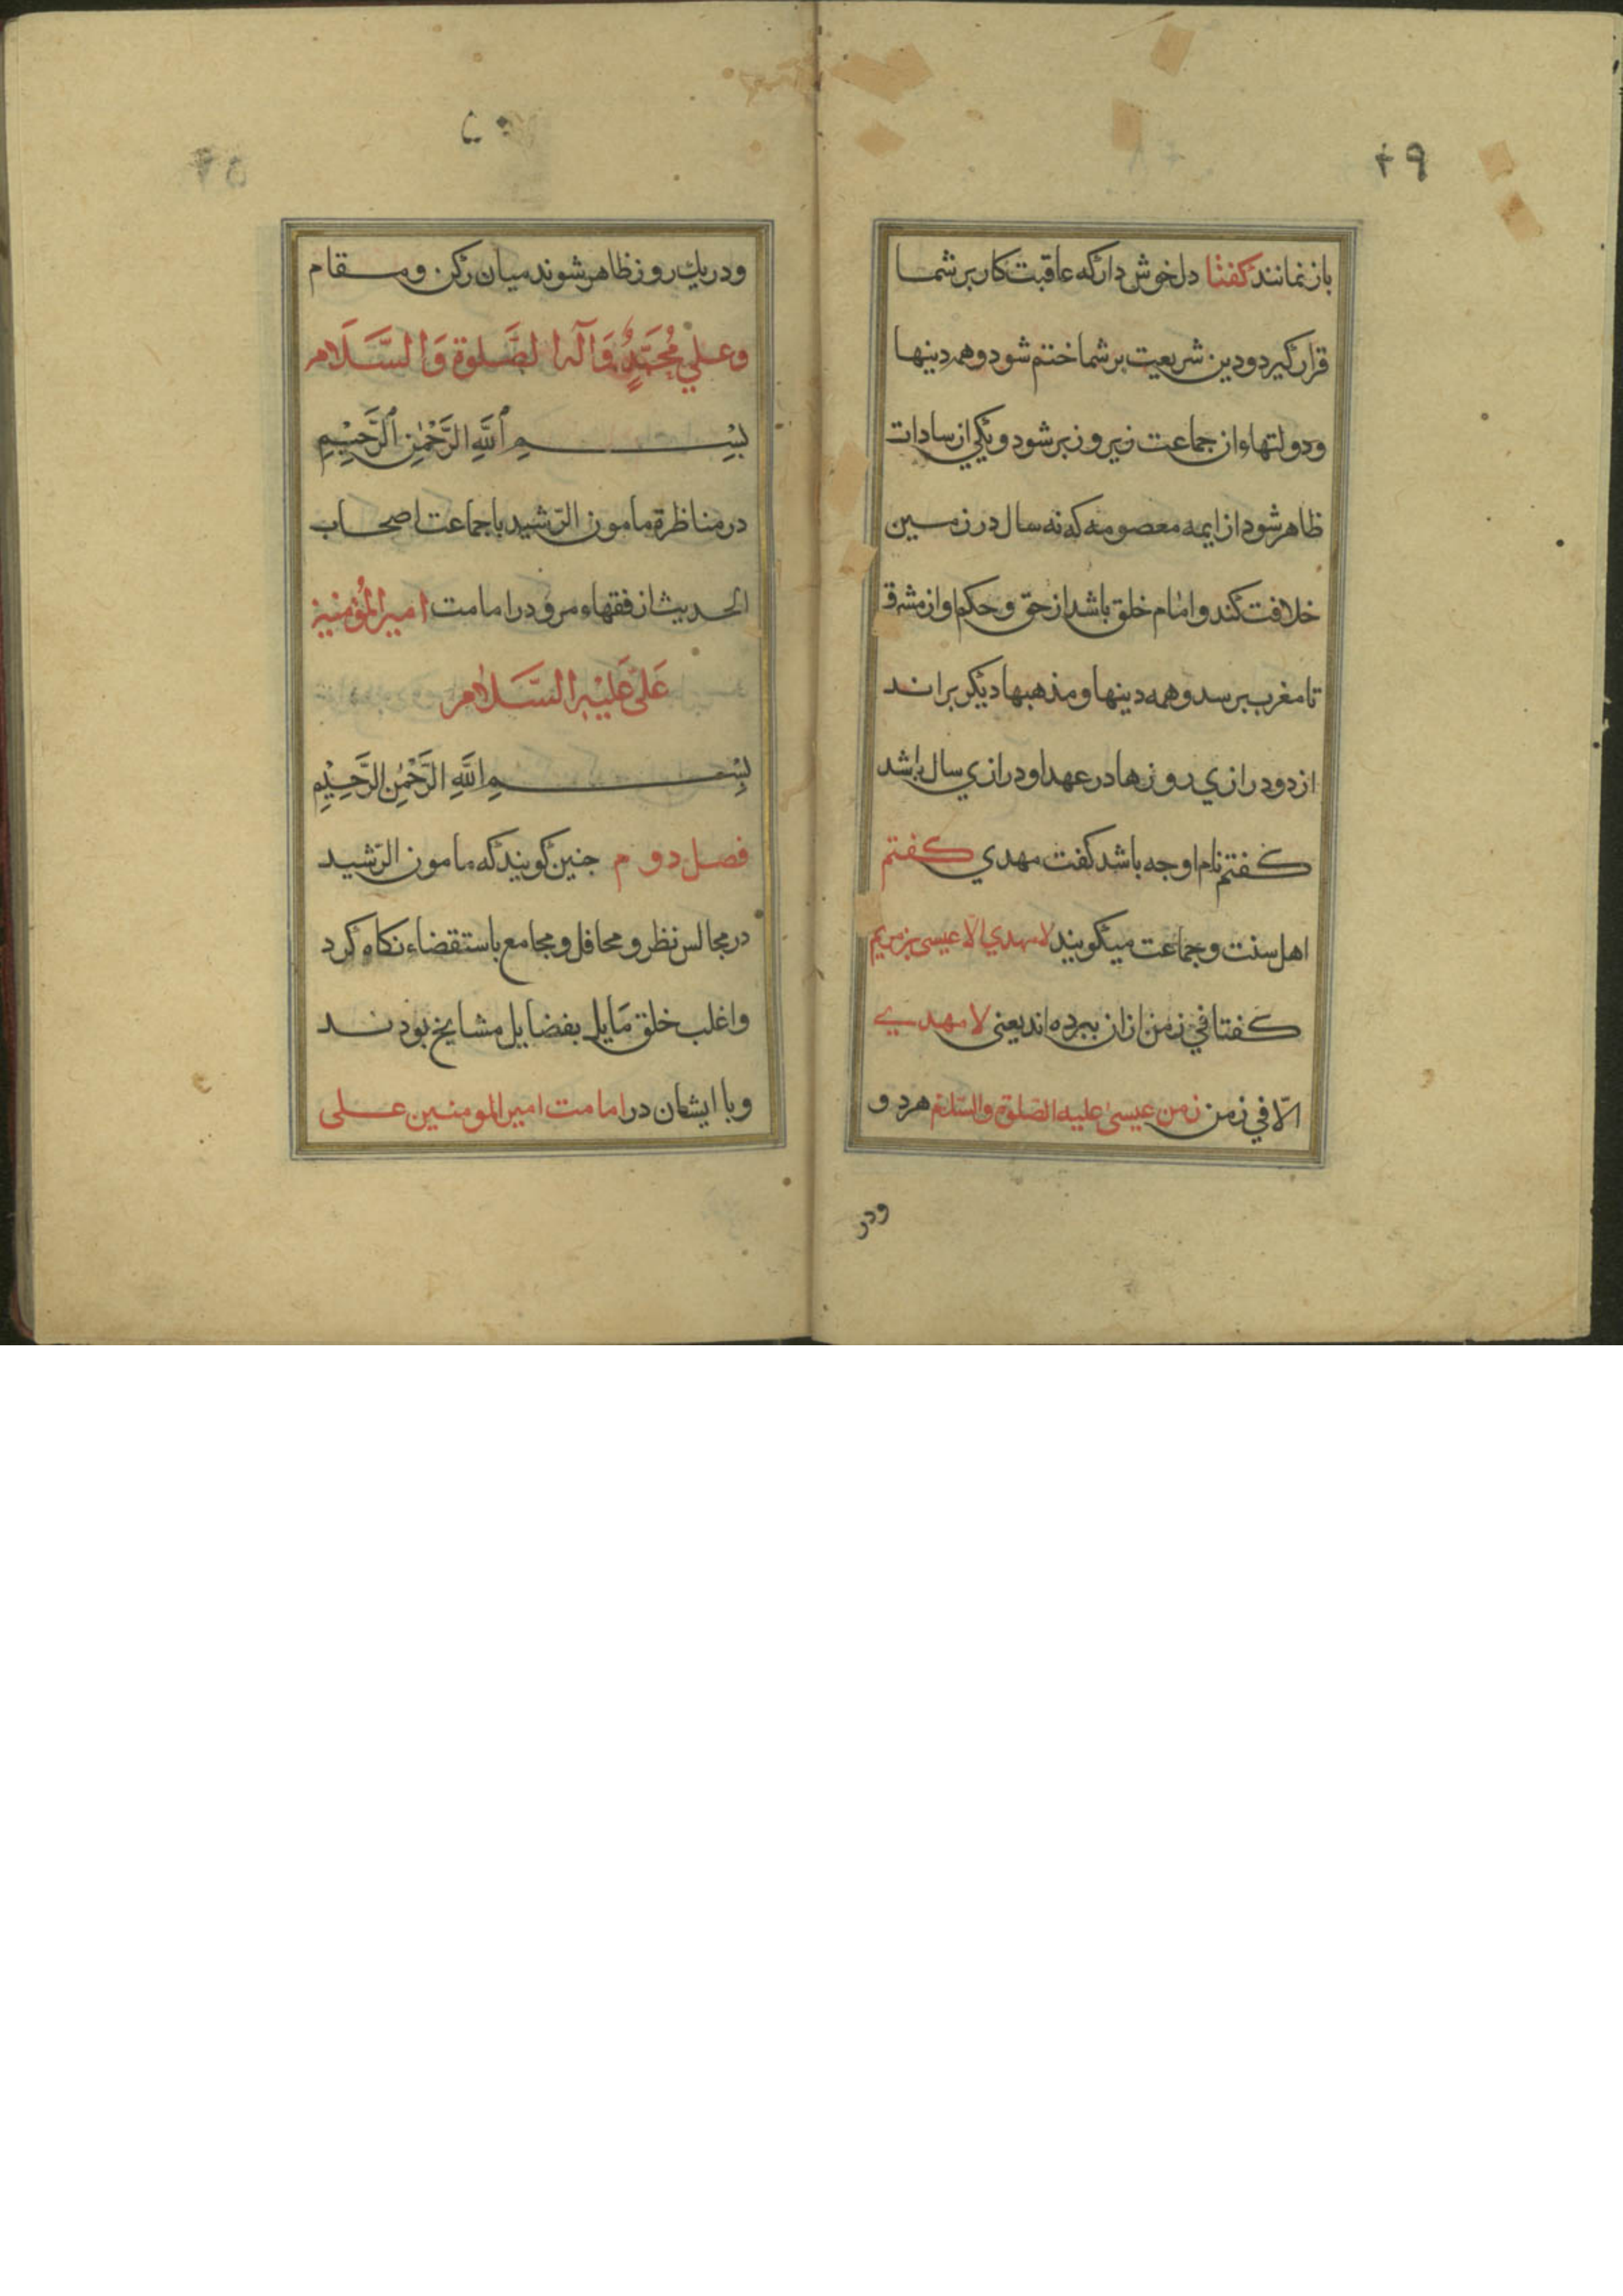 ٤٩
باز نمانند كفتا دل خوش دار كه عاقبت كار بر شما
قرار كيرد و دين شريعت بر شما ختم شود و همه دينها
و دولتهاء ان جماعت زير و زبر شود و يكي از سادات
ظاهر شود از ايمه معصومه كه نه سال در زمين
خلافت كند و امام خلق باشد از حق و حكم او از مشرق
تا مغرب برسد و همه دينها و مذهبها ديكر براند
از دود رازي روزها در عهد او درازي سال باشد
كفتم نام او جه باشد كفت مهدي كفتم
اهل سنت و جماعت ميكويند لا مهدي الا عيسى بن مريم
كفتا في زمن ازان ببرده اند يعنى لا مهدي
الّا في زمن زمن عيسى عليه الصلوة والسلام هر دو
ودر
٥٠
و در يك روز ظاهر شوند ميان ركن و مقام
وعلي مُحَمَّدٍ وَآله الصَّلوة وَالسَّلَام
بِسْمِ اللَّهِ الرَّحْمٰنِ الرَّحِيْمِ
در مناظرة مامون الرّشيد با جماعت اصحاب
الحديث از فقهاء مرو در امامت امير المُؤمنين
عَلى عَليْه السَّلام
بِسْمِ اللَّهِ الرَّحْمٰنِ الرَّحِيْمِ
فصل دوم جنين كويند كه مامون الرّشيد
در مجالس نظر و محافل و مجامع باستقضاء نكاه كرد
واغلب خلق مَايل بفضايل مشايخ بودند
وبا ايشان در امامت امير المومنين على